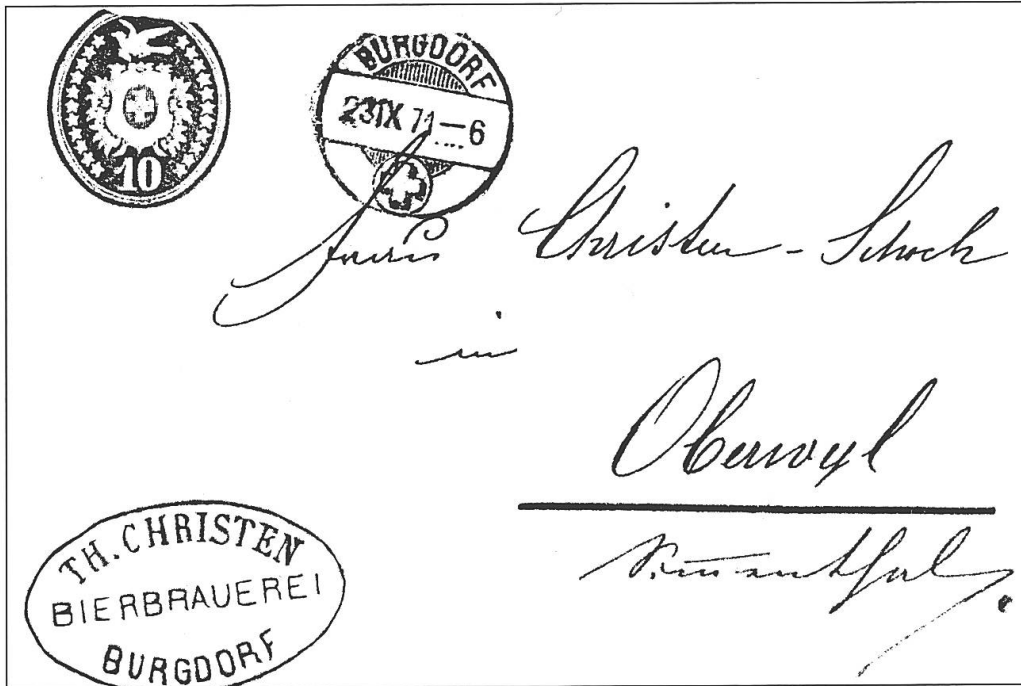 10
BURGDORF
23 IX 71—6
Christen - Schoch
in
Oberwyl
Simmenthal.
TH. CHRISTEN
BIERBRAUEREI
BURGDORF